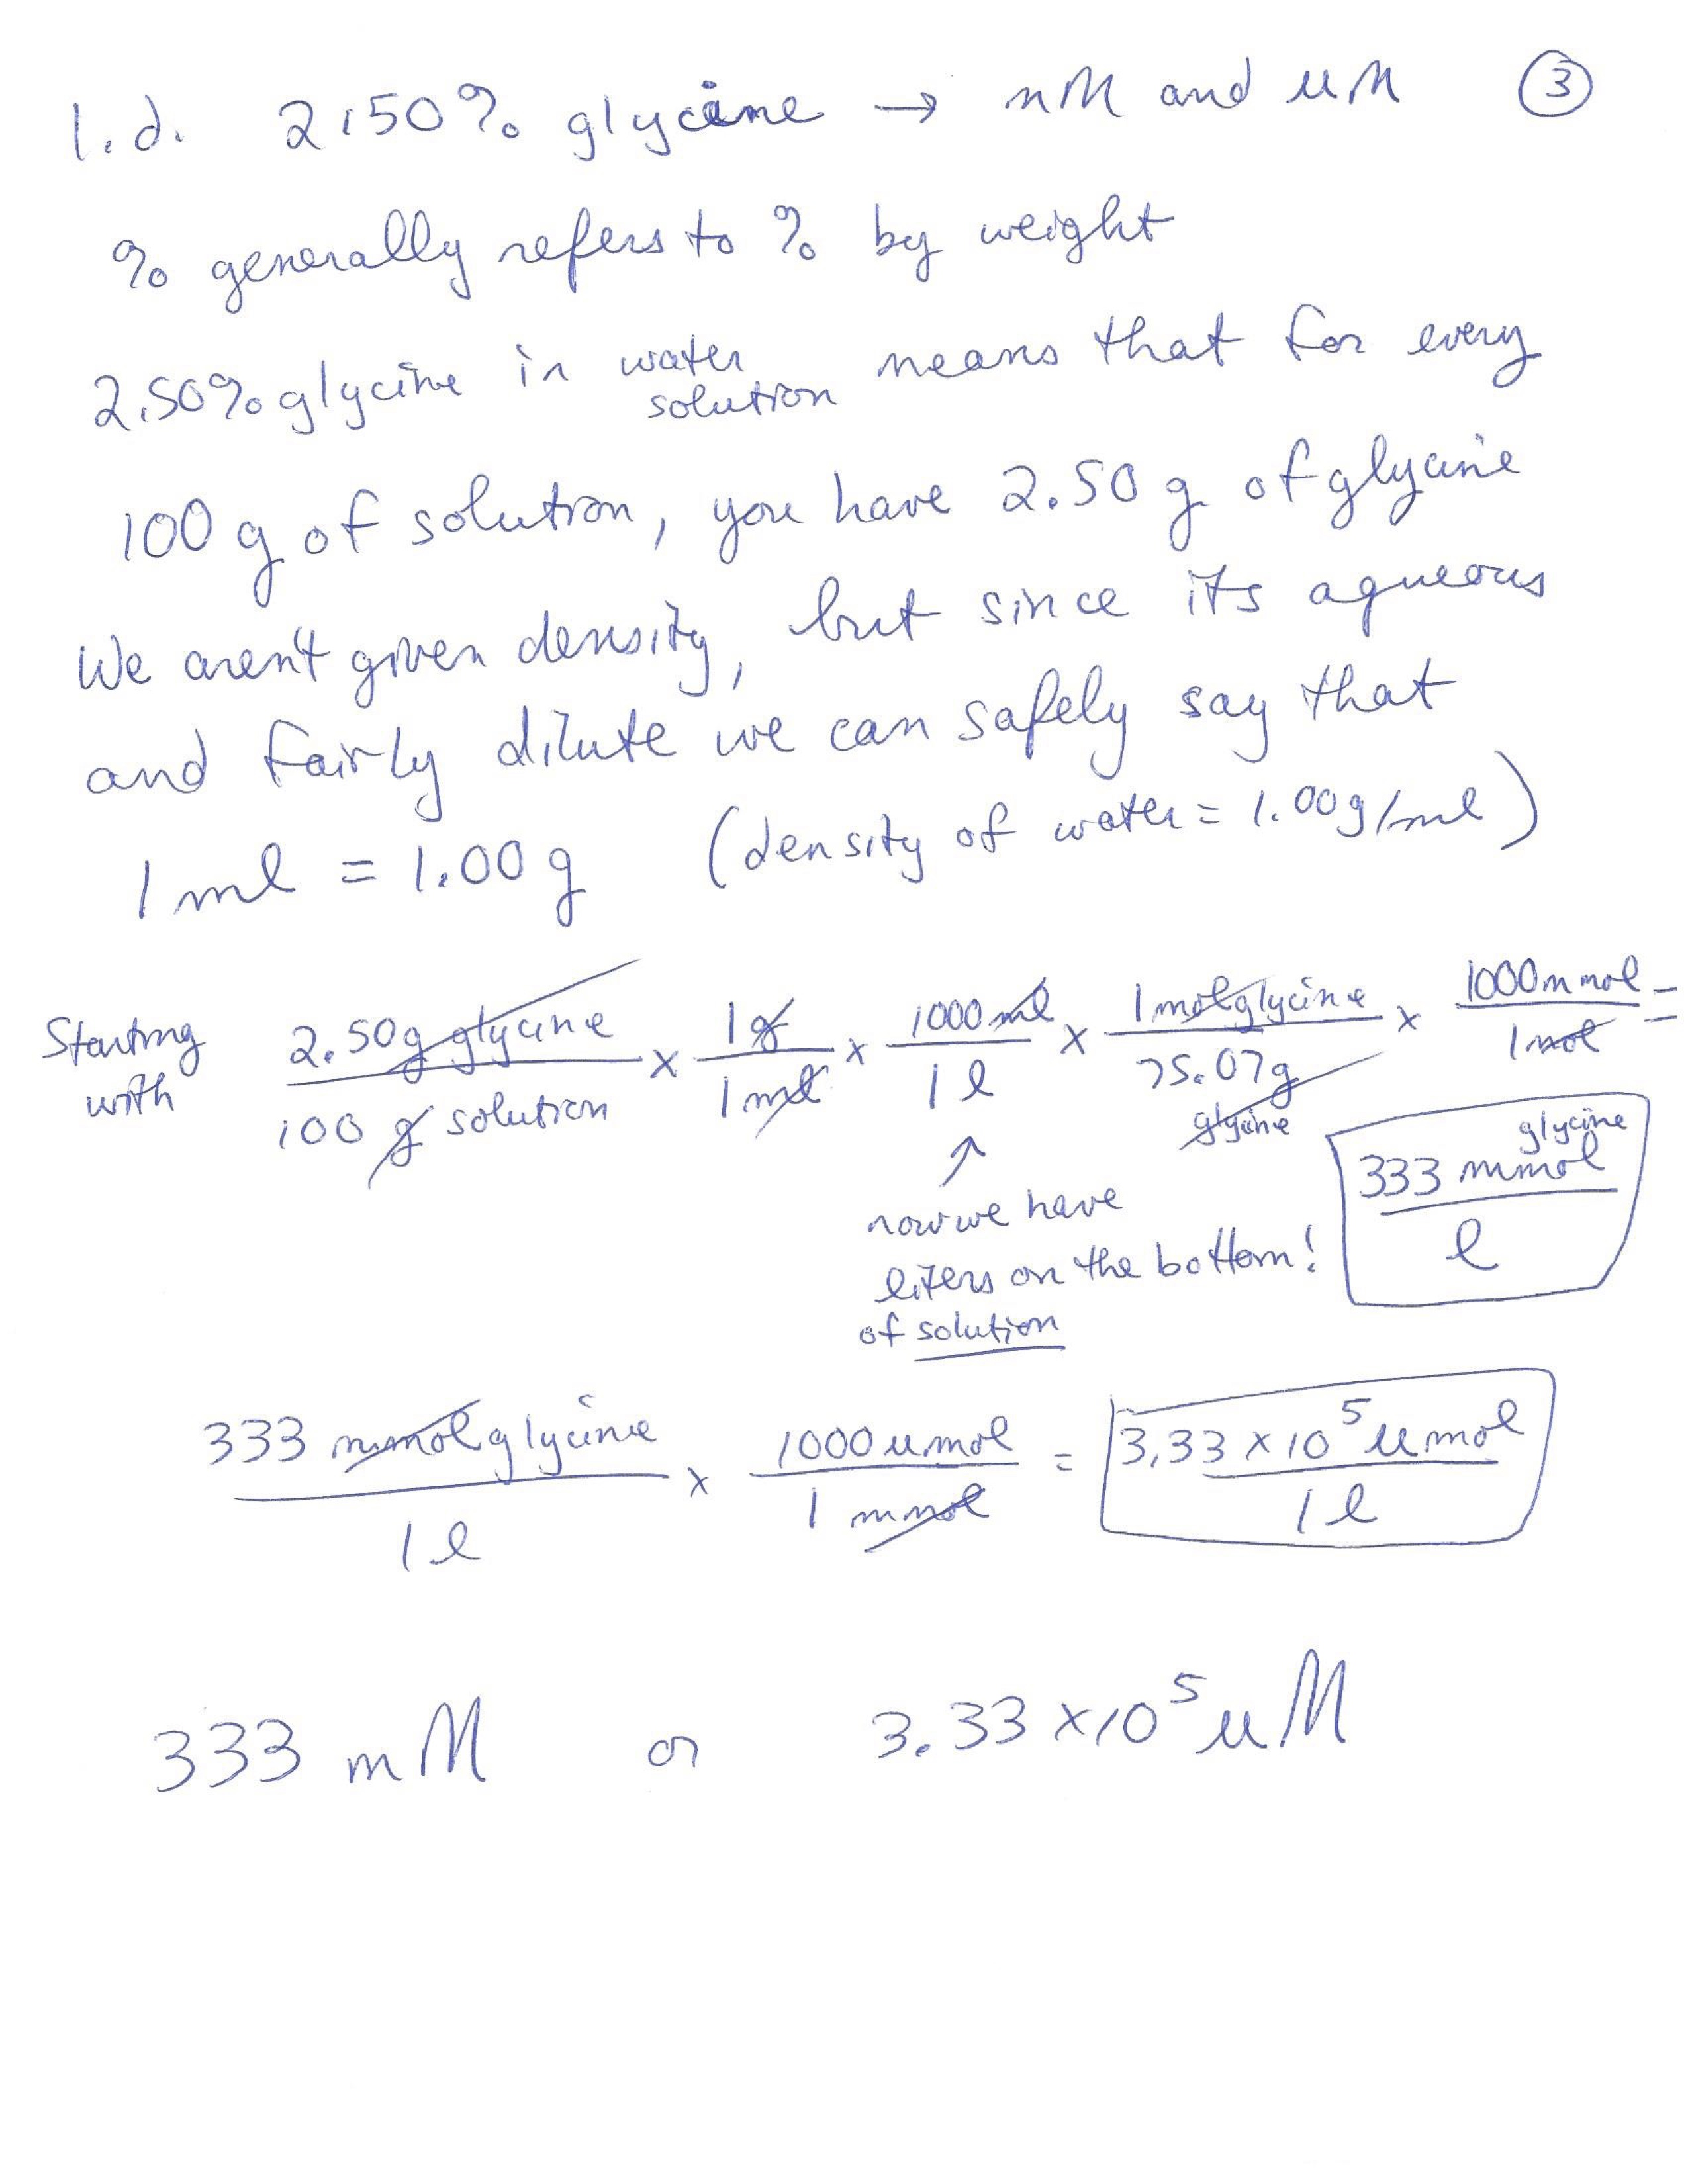 1.d. 2.50% glycine → mM and uM ③
% generally refers to % by weight
2.50% glycine in water solution means that for every
100 g of solution, you have 2.50 g of glycine
We aren't given density, but since its aqueous
and fairly dilute we can safely say that
1 ml = 1.00 g (density of water = 1.00g/ml)
Starting with 2.50g glycine / 100 g solution x 1g / 1 ml x 1000 ml / 1 l x 1 mol glycine / 75.07g glycine x 1000 m mol / 1 mol =
333 mmol glycine / l
↑
now we have
liters on the bottom!
of solution
333 mmol glycine / 1 l x 1000 u mol / 1 mmol = 3.33 x 10^5 u mol / 1 l
333 mM or 3.33 x 10^5 uM